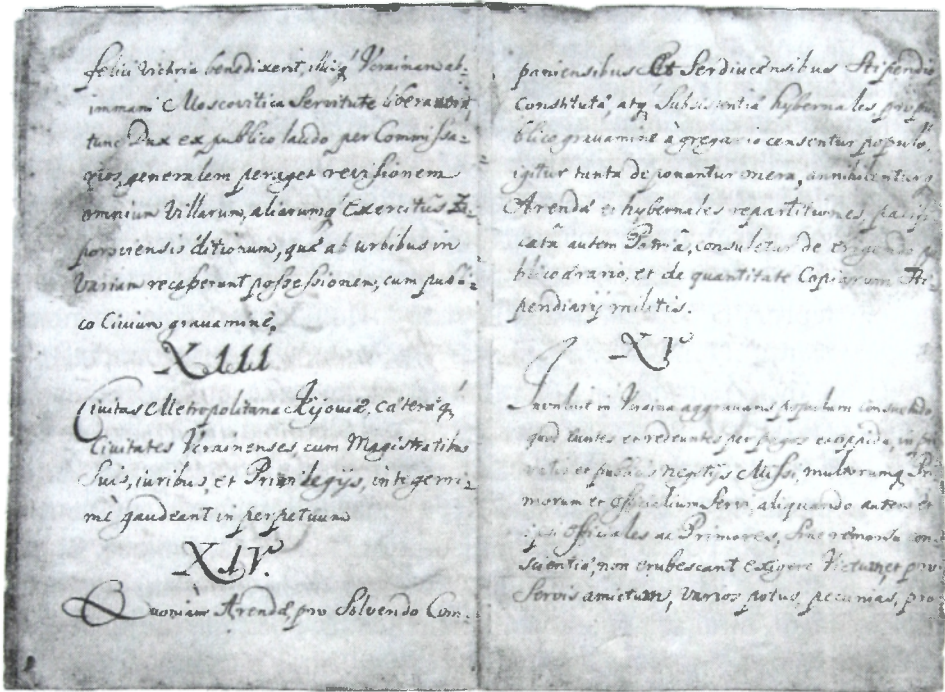 felici victoria benedixerit, illiq; Ucrainam ab-
immani Moscovitica Servitute liberaverit,
tunc Dux ex publico laudo per Commissa-
rios, generalem peraget revisionem
omnium Villarum, aliarumq; Exercitus Za-
poroviensis ditionum, quæ ab urbibus in
Variam recesserunt possessionem, cum publi-
co Civium gravamine.
XIII
Civitas Metropolitana Kijoviæ, cæteræq;
Civitates Ucrainenses, cum Magistratibus
Suis, iuribus, et Privilegijs, integerri-
mè gaudeant in perpetuum
XIV.
Quoniam Arendæ, pro Solvendo Com-
paniensibus Et Serdiucensibus Stipendio
Constitutæ, atq; Subsistentiæ hybernales, pro pu-
blico gravamine à gregario censentur populo,
igitur tanta deponantur onera, annihilentur q;
Arendæ et hybernales repartitiones, pacifi-
catâ autem Patriâ, consuletur de erigendo pu-
blico ærario, et de quantitate Copiarum Sti-
pendiarij militis.
XV
Inolevit in Ucraina aggravans populum consuetudo,
quod euntes et redeuntes per pagos et oppida, in pri-
vatis et publicis negotijs Missi, multorumq; Pri-
morum et Officialium Servi, aliquando autem et
ipsi Officiales ac Primores, sine remorsu con-
scientiæ, non erubescant exigere Victum, et pro
Servis amictum, varios potus, pecunias, pro